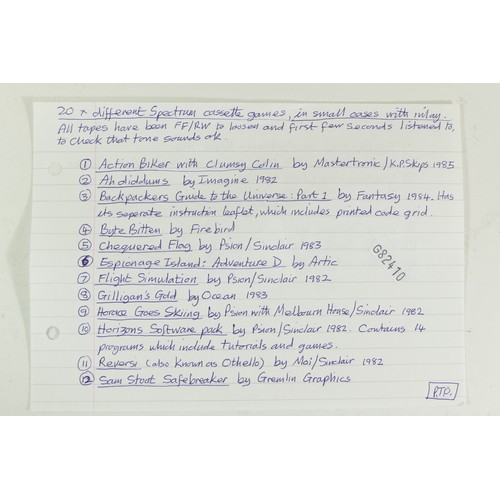 20 x different Spectrum cassette games, in small cases with inlay.
All tapes have been FF/RW to loosen and first few seconds listened to,
to check that tone sounds ok.
① Action Biker with Clumsy Colin by Mastertronic/K.P.Skips 1985
② Ah diddums by Imagine 1982
③ Backpackers Guide to the Universe: Part 1 by Fantasy 1984. Has
its seperate instruction leaflet, which includes printed code grid.
④ Byte Bitten by Firebird
⑤ Chequered Flag by Psion/Sinclair 1983
⑥ Espionage Island: Adventure D by Artic
⑦ Flight Simulation by Psion/Sinclair 1982
⑧ Gilligan's Gold by Ocean 1983
⑨ Horace Goes Skiing by Psion with Melbourn House/Sinclair 1982
⑩ Horizons Software pack by Psion/Sinclair 1982. Contains 14
programs which include tutorials and games.
⑪ Reversi (also known as Othello) by Moi/Sinclair 1982
⑫ Sam Stoat Safebreaker by Gremlin Graphics
G82410
P.T.O.